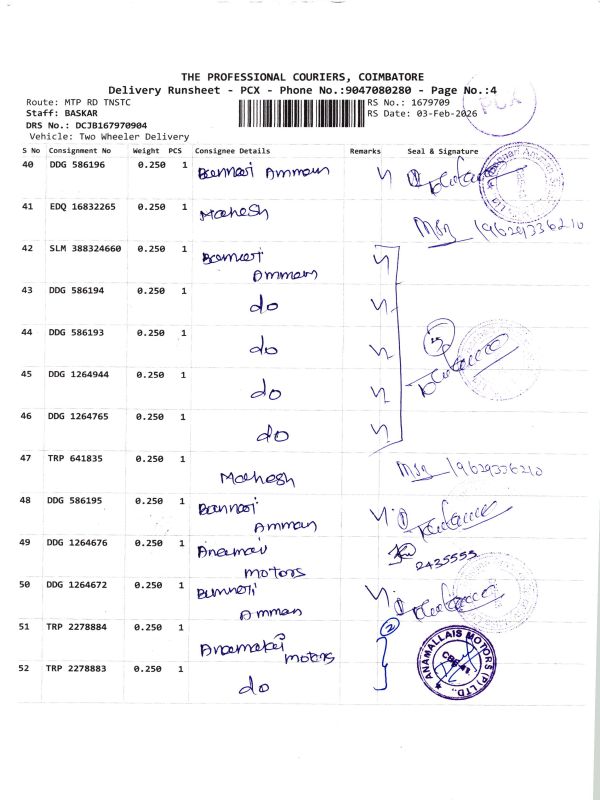 THE PROFESSIONAL COURIERS, COIMBATORE
Delivery Runsheet - PCX - Phone No.:9047080280 - Page No.:4
Route: MTP RD TNSTC
RS No.: 1679709
PCX
Staff: BASKAR
RS Date: 03-Feb-2026
DRS No.: DCJB167970904
Vehicle: Two Wheeler Delivery
S No Consignment No Weight PCS Consignee Details Remarks Seal & Signature
40 DDG 586196 0.250 1 Bannari Amman
41 EDQ 16832265 0.250 1 Mahesh
Msg 19629336210
42 SLM 388324660 0.250 1 Bannari
Amman
43 DDG 586194 0.250 1 do
44 DDG 586193 0.250 1 do
45 DDG 1264944 0.250 1 do
46 DDG 1264765 0.250 1 do
47 TRP 641835 0.250 1 Mahesh Msg 19629336210
48 DDG 586195 0.250 1 Bannari
Amman
49 DDG 1264676 0.250 1 Anamai
motors
2435555
50 DDG 1264672 0.250 1 Bannari
Amman
51 TRP 2278884 0.250 1 Anamalai
motors
2
52 TRP 2278883 0.250 1 do
ANAMALLAIS MOTORS (P) LTD.,
CBE-43